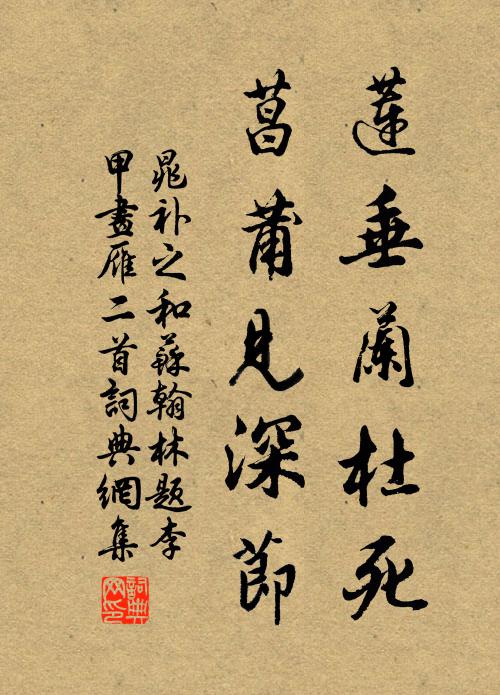 蓮垂蘭杜死
菖蒲見深節
晁补之和蘇翰林題李
甲畫雁二首詞典網集
詞典
网印